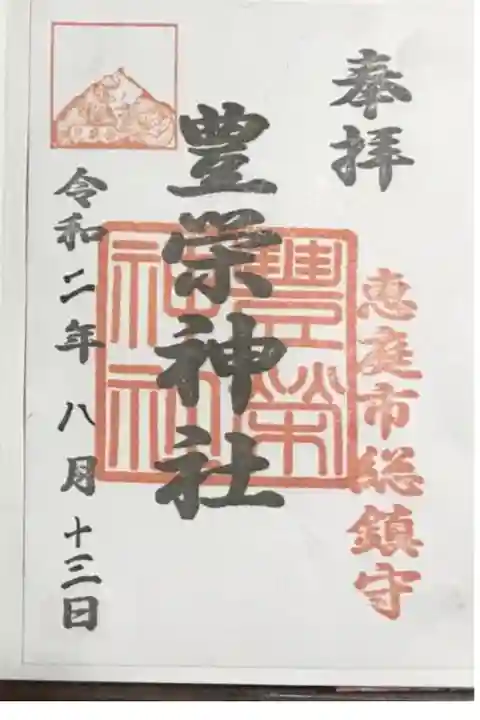 奉拝
恵庭市総鎮守
豊栄神社
豊榮神社
令和二年八月十三日